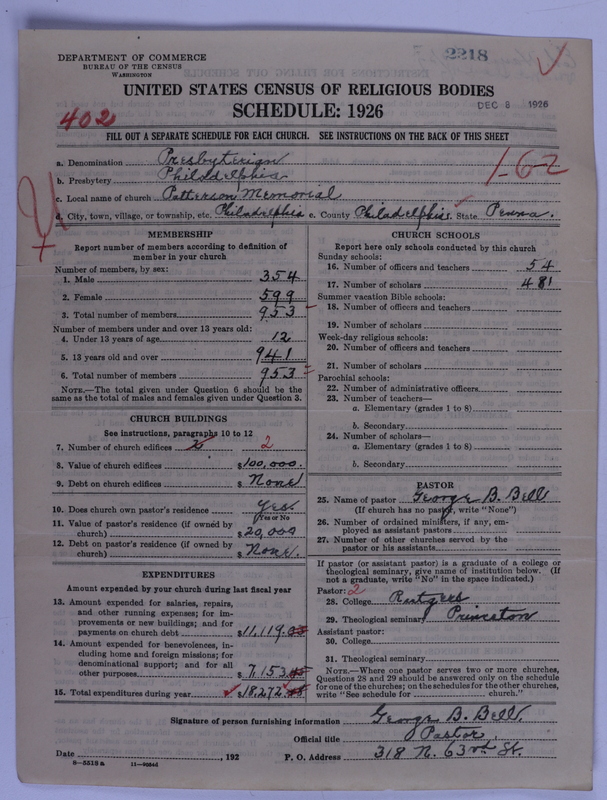 2218
DEPARTMENT OF COMMERCE
BUREAU OF THE CENSUS
WASHINGTON
UNITED STATES CENSUS OF RELIGIOUS BODIES
SCHEDULE: 1926
DEC 8 1926
402
FILL OUT A SEPARATE SCHEDULE FOR EACH CHURCH. SEE INSTRUCTIONS ON THE BACK OF THIS SHEET
a. Denomination Presbyterian
b. Presbytery Philadelphia
1-62
c. Local name of church Patterson Memorial
d. City, town, village, or township, etc. Philadelphia e. County Philadelphia f. State Penna.
MEMBERSHIP
Report number of members according to definition of
member in your church
Number of members, by sex:
1. Male 354
2. Female 599
3. Total number of members 953
Number of members under and over 13 years old:
4. Under 13 years of age 12
5. 13 years old and over 941
6. Total number of members 953
NOTE.—The total given under Question 6 should be
the same as the total of males and females given under Question 3.
CHURCH BUILDINGS
See instructions, paragraphs 10 to 12
7. Number of church edifices 2
8. Value of church edifices $100,000.
9. Debt on church edifices $ None
10. Does church own pastor's residence Yes.
Yes or No
11. Value of pastor's residence (if owned by
church) $20,000
12. Debt on pastor's residence (if owned by
church) $ None.
EXPENDITURES
Amount expended by your church during last fiscal year
13. Amount expended for salaries, repairs,
and other running expenses; for im-
provements or new buildings; and for
payments on church debt $11,119.
14. Amount expended for benevolences, in-
cluding home and foreign missions; for
denominational support; and for all
other purposes $ 7,153.
15. Total expenditures during year $18,272.
CHURCH SCHOOLS
Report here only schools conducted by this church
Sunday schools:
16. Number of officers and teachers 54
17. Number of scholars 481
Summer vacation Bible schools:
18. Number of officers and teachers
19. Number of scholars
Week-day religious schools:
20. Number of officers and teachers
21. Number of scholars
Parochial schools:
22. Number of administrative officers
23. Number of teachers—
a. Elementary (grades 1 to 8)
b. Secondary
24. Number of scholars—
a. Elementary (grades 1 to 8)
b. Secondary
PASTOR
25. Name of pastor George B. Bell
(If church has no pastor, write "None")
26. Number of ordained ministers, if any, em-
ployed as assistant pastors
27. Number of other churches served by the
pastor or his assistants
If pastor (or assistant pastor) is a graduate of a college or
theological seminary, give name of institution below. (If
not a graduate, write "No" in the space indicated.)
Pastor: 2
28. College Rutgers
29. Theological seminary Princeton
Assistant pastor:
30. College
31. Theological seminary
NOTE.—Where one pastor serves two or more churches,
Questions 28 and 29 should be answered only on the schedule
for one of the churches; on the schedules for the other churches,
write "See schedule for church."
Signature of person furnishing information George B. Bell.
Official title Pastor.
Date , 192 P. O. Address 318 N. 63rd St.
8—5518a 11—9554d